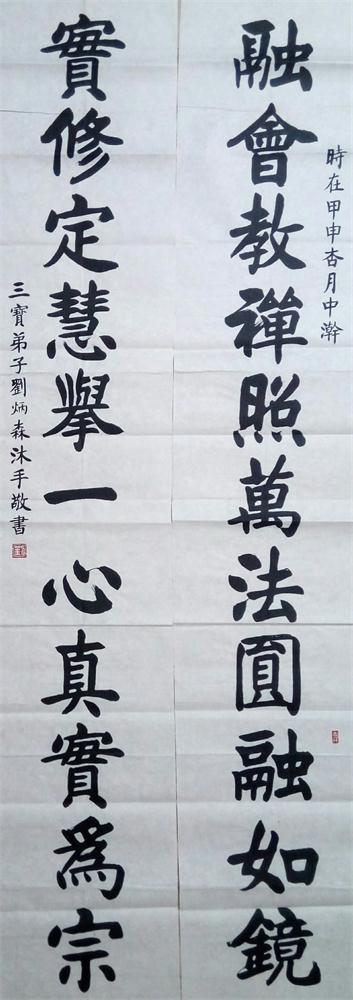 時在甲申杏月中澣
融會教禪照萬法圓融如鏡
實修定慧舉一心真實爲宗
三寶弟子劉炳森沐手敬書